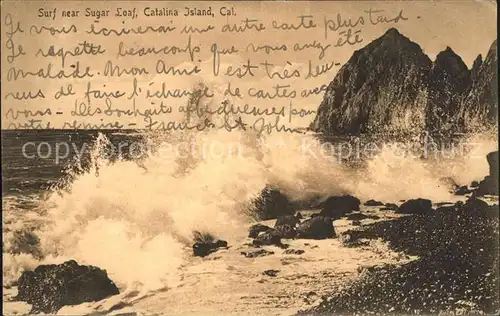 Surf near Sugar Loaf, Catalina Island, Cal.
Je vous écrirai une autre carte plus tard.
Je regrette beaucoup que vous avez été
malade. Mon Ami est très heu-
reux de faire l'échange de cartes avec
vous - des Souhaits
votre amie Frances St. John
copyright